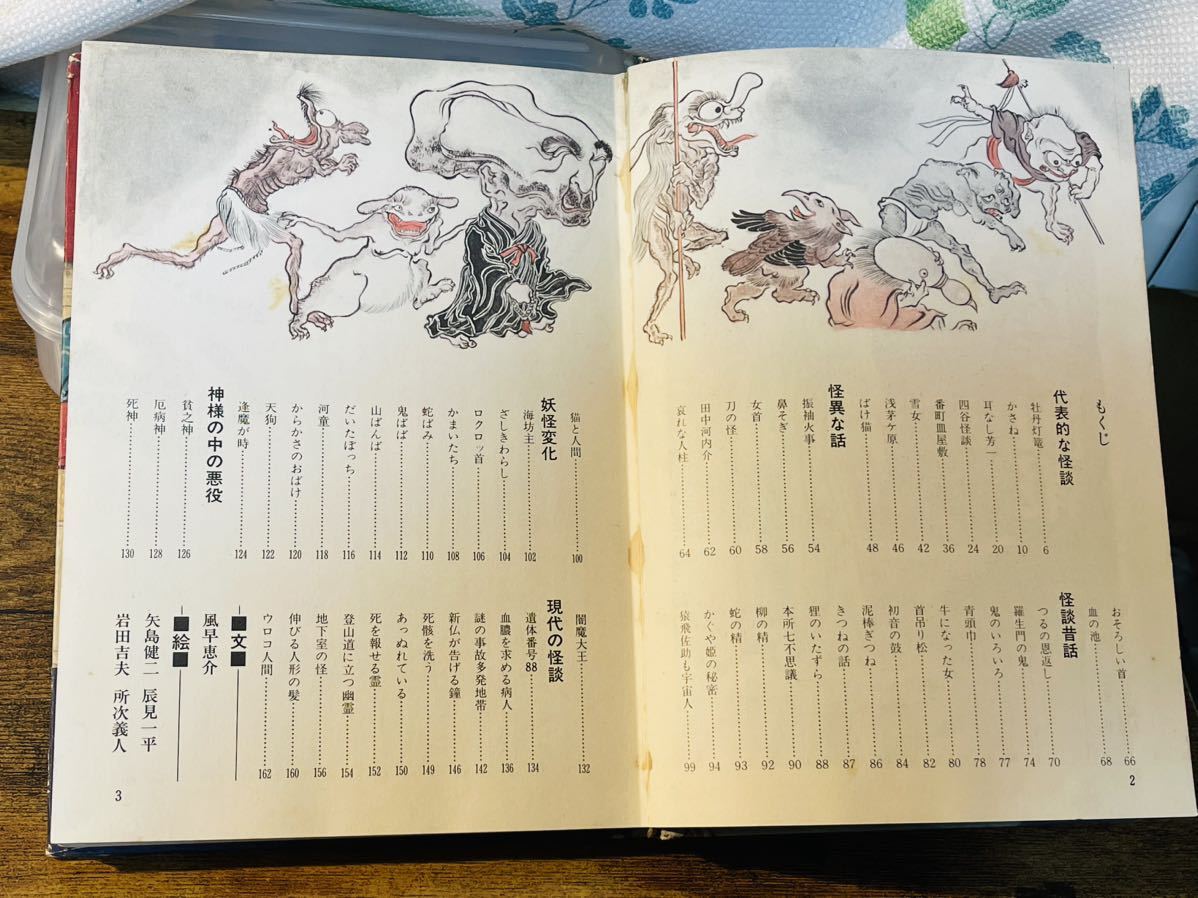 もくじ
代表的な怪談
牡丹灯篭……6
かさね……10
耳なし芳一……20
四谷怪談……24
番町皿屋敷……36
雪女……42
浅茅ケ原……46
ばけ猫……48
怪異な話
振袖火事……54
鼻そぎ……56
女首……58
刀の怪……60
田中河内介……62
哀れな人柱……64
おそろしい首……66
血の池……68
怪談昔話
つるの恩返し……70
羅生門の鬼……74
鬼のいろいろ……77
青頭巾……78
牛になった女……80
首吊り松……82
初音の鼓……84
泥棒ぎつね……86
きつねの話……87
狸のいたずら……88
本所七不思議……90
柳の精……92
蛇の精……93
かぐや姫の秘密……94
猿飛佐助も宇宙人……99
2
猫と人間……100
妖怪変化
海坊主……102
ざしきわらし……104
ロクロッ首……106
かまいたち……108
蛇ばみ……110
鬼ばば……112
山ばんば……114
だいたぼっち……116
河童……118
からかさのおばけ……120
天狗……122
逢魔が時……124
神様の中の悪役
貧之神……126
厄病神……128
死神……130
閻魔大王……132
現代の怪談
遺体番号88……134
血膿を求める病人……136
謎の事故多発地帯……142
新仏が告げる鐘……146
死骸を洗う……149
あっぬれている……150
死を報せる霊……152
登山道に立つ幽霊……154
地下室の怪……156
伸びる人形の髪……160
ウロコ人間……162
■文■
風早恵介
■絵■
矢島健二 辰見一平
岩田吉夫 所次義人
3